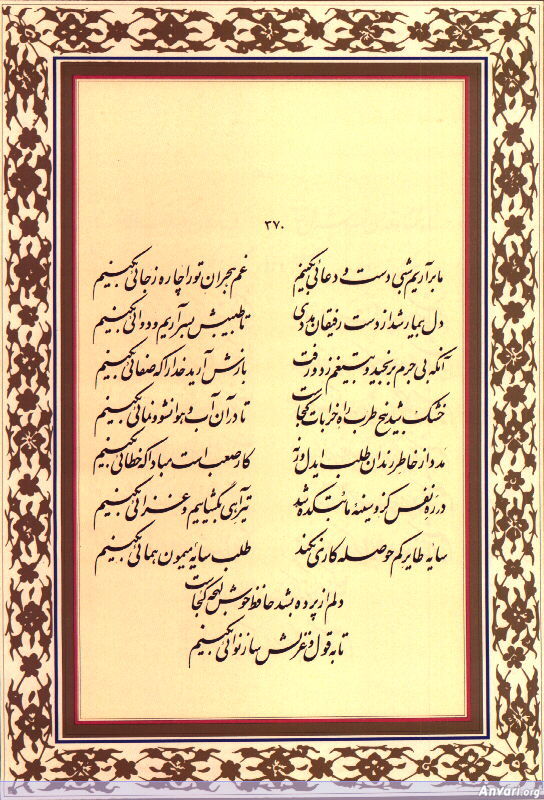 ۳۷۰
ما برآریم شبی دست و دعائی بکنیم غم هجران تو را چاره ز جائی بکنیم
دل بیمار شد از دست رفیقان مددی تا طبیبش بسر آریم و دوائی بکنیم
آنکه بی جرم برنجید و بتیغم زد و رفت بازش آرید خدا را که صفائی بکنیم
خشک شد بیخ طرب راه خرابات کجاست تا در آن آب و هوا نشو و نمائی بکنیم
مدد از خاطر رندان طلب ایدل ورنه کار صعب است مبادا که خطائی بکنیم
در ره نفس کزو سینه ما بتکده شد تیر آهی بگشائیم و غزائی بکنیم
سایه طایر کم حوصله کاری نکند طلب سایه میمون همائی بکنیم
دلم از پرده بشد حافظ خوش لهجه کجاست
تا به قول و غزلش ساز نوائی بکنیم
Anvari.org